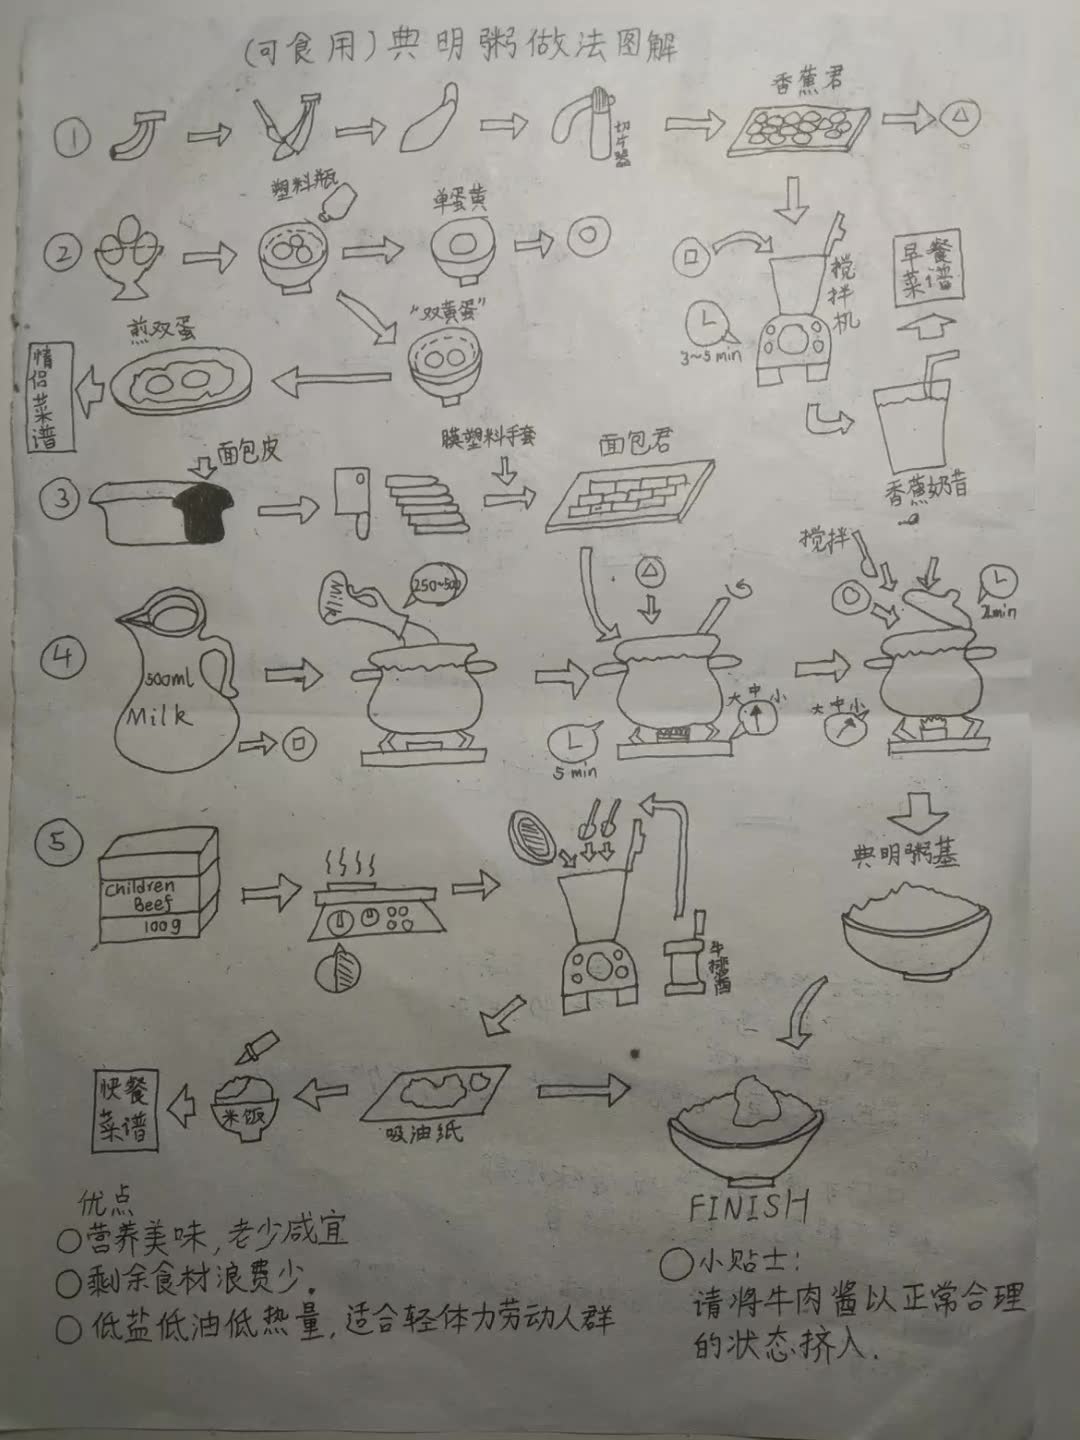 (可食用)典明粥做法图解
香蕉君
①
切片器
△
塑料瓶
单蛋黄
②
搅拌机
早餐菜谱
3~5min
煎双蛋
"双黄蛋"
情侣菜谱
香蕉奶昔
面包皮
膜塑料手套
面包君
③
搅拌
Milk
250~500
2min
④
500ml
Milk
5min
大中小
大中小
典明粥基
⑤
Children
Beef
100g
牛排酱
快餐菜谱
米饭
吸油纸
FINISH
优点
○营养美味,老少咸宜
○剩余食材浪费少.
○低盐低油低热量,适合轻体力劳动人群
○小贴士:
请将牛肉酱以正常合理
的状态挤入.